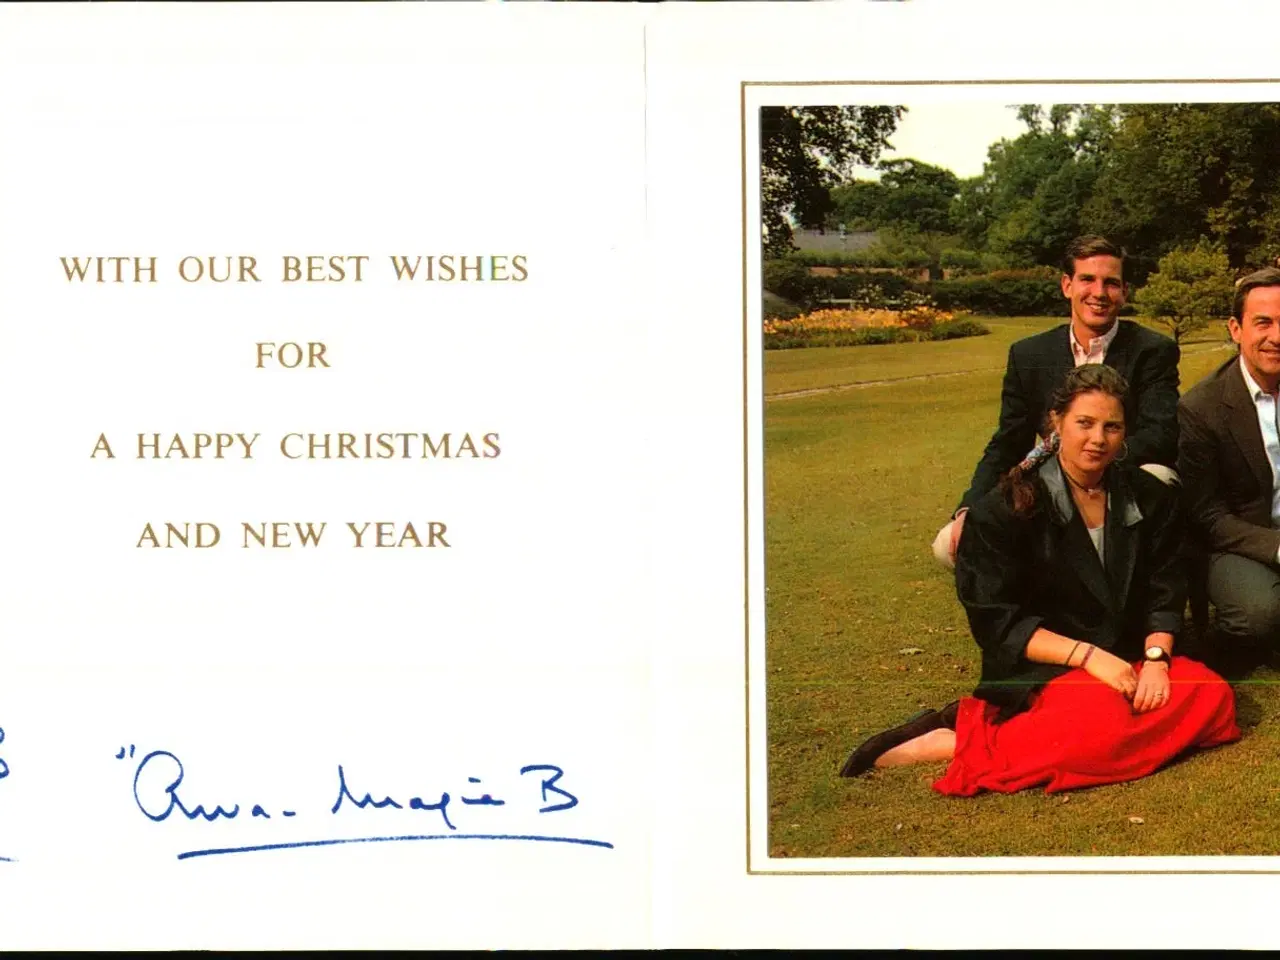 WITH OUR BEST WISHES
FOR
A HAPPY CHRISTMAS
AND NEW YEAR
"Anna-Marie B